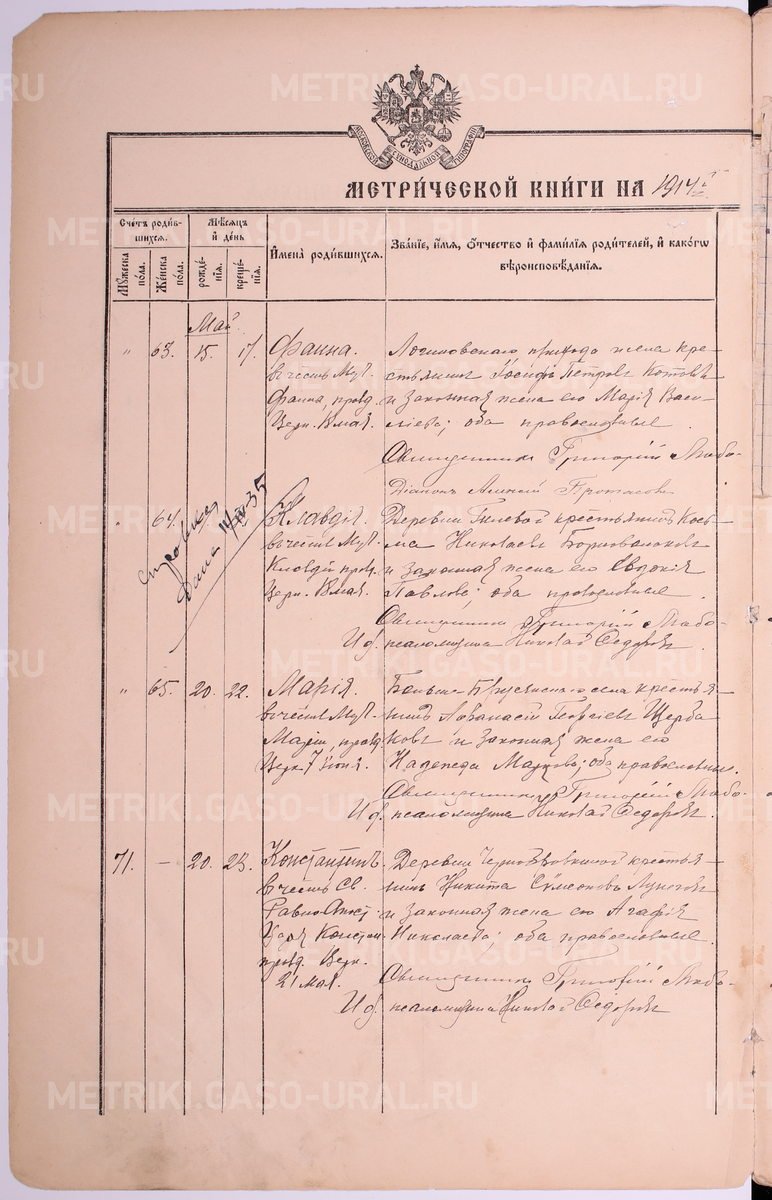 METRIKI.GASO-URAL.RU
МОСКОВСКОЙ СѴНОДАЛЬНОЙ ТИПОГРАФІИ
МЕТРИ́ЧЕСКОЙ КНИ́ГИ НА 1914 г.
Сче́тъ роди́вшихся.
Мꙋ́жеска по́ла.
Же́нска по́ла.
Мѣ́сяцъ и҆ де́нь
рожде́нїя.
креще́нїя.
И҆мена̀ роди́вшихся.
Зва́нїе, и҆́мя, ѻ҆́тчество и҆ фами́лїя роди́телей, и҆ како́гѡ вѣроисповѣ́данїя.
Май.
" 63. 15. 17.
Фаина.
въ честь Муч.
Фаина, празд.
Церк. 18 мая.
Логиновскаго прихода села кре-
стьянинъ Іосифъ Петровъ Котовъ
и законная жена его Марія Васи-
льева; оба православные.
Священникъ Григорій
Діаконъ Алексій Протасовъ
" 64.
справка
дана 35
Клавдія.
въ честь Муч.
Клавдіи празд.
Церк. 18 мая.
Деревни крестьянинъ Кось-
ма Николаевъ
и законная жена его Евдокія
Павлова; оба православные.
Священникъ Григорій
И. д. псаломщика Николай Федоровъ.
" 65. 20. 22.
Марія.
въ честь Муч.
Маріи, празд.
Церк. 7 іюня.
села крестья-
нинъ Аѳанасій Георгіевъ Щерба
ковъ и законная жена его
Надежда Маркова; оба православные.
Священникъ Григорій
И. д. псаломщика Николай Федоровъ.
71. — 20. 23.
Константинъ
въ честь Св.
Равноапост.
Царя Констан.
празд. Церк.
21 мая.
Деревни крестья-
нинъ Никита Сѵмеоновъ
и законная жена его Агафія
Николаева; оба православные.
Священникъ Григорій
И. д. псаломщика Николай Федоровъ